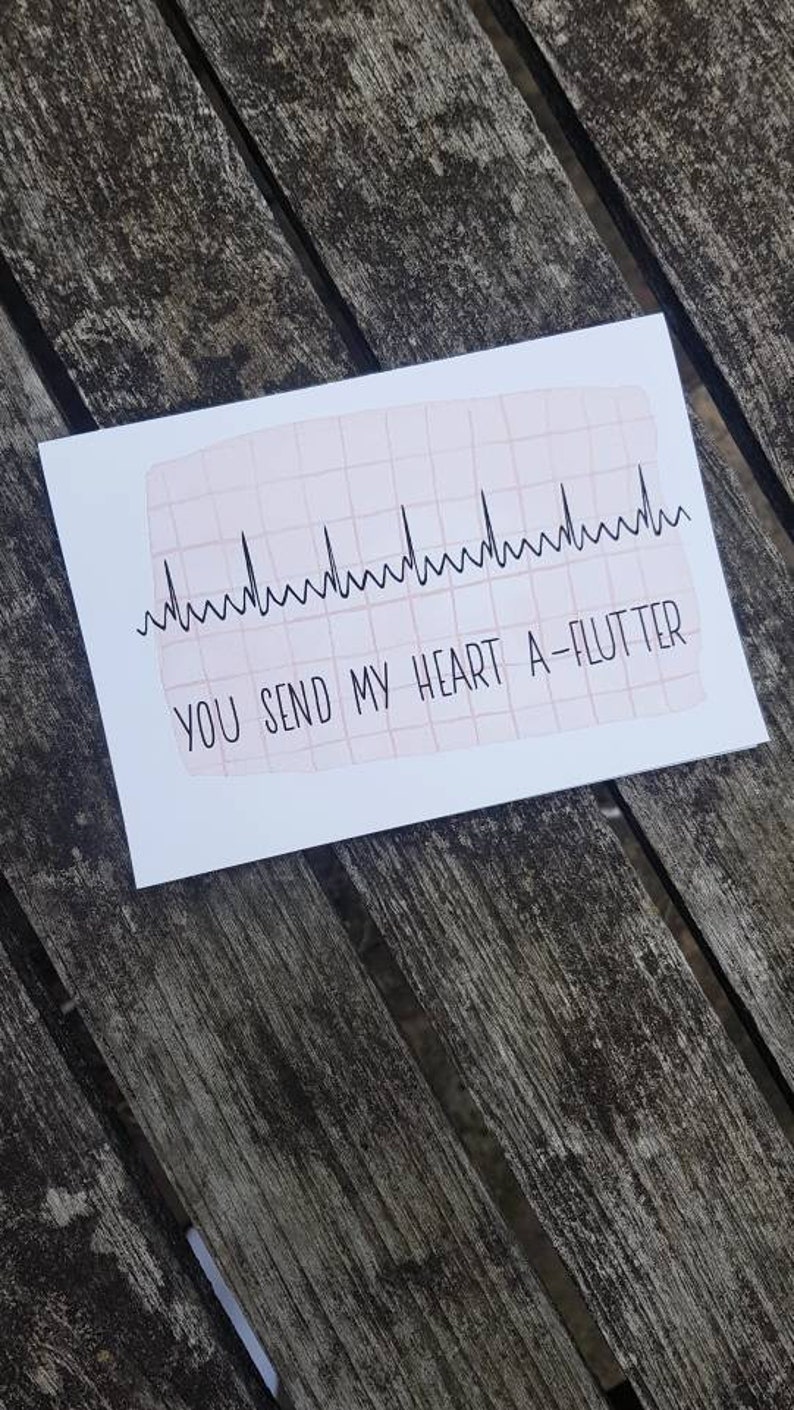 YOU SEND MY HEART A-FLUTTER